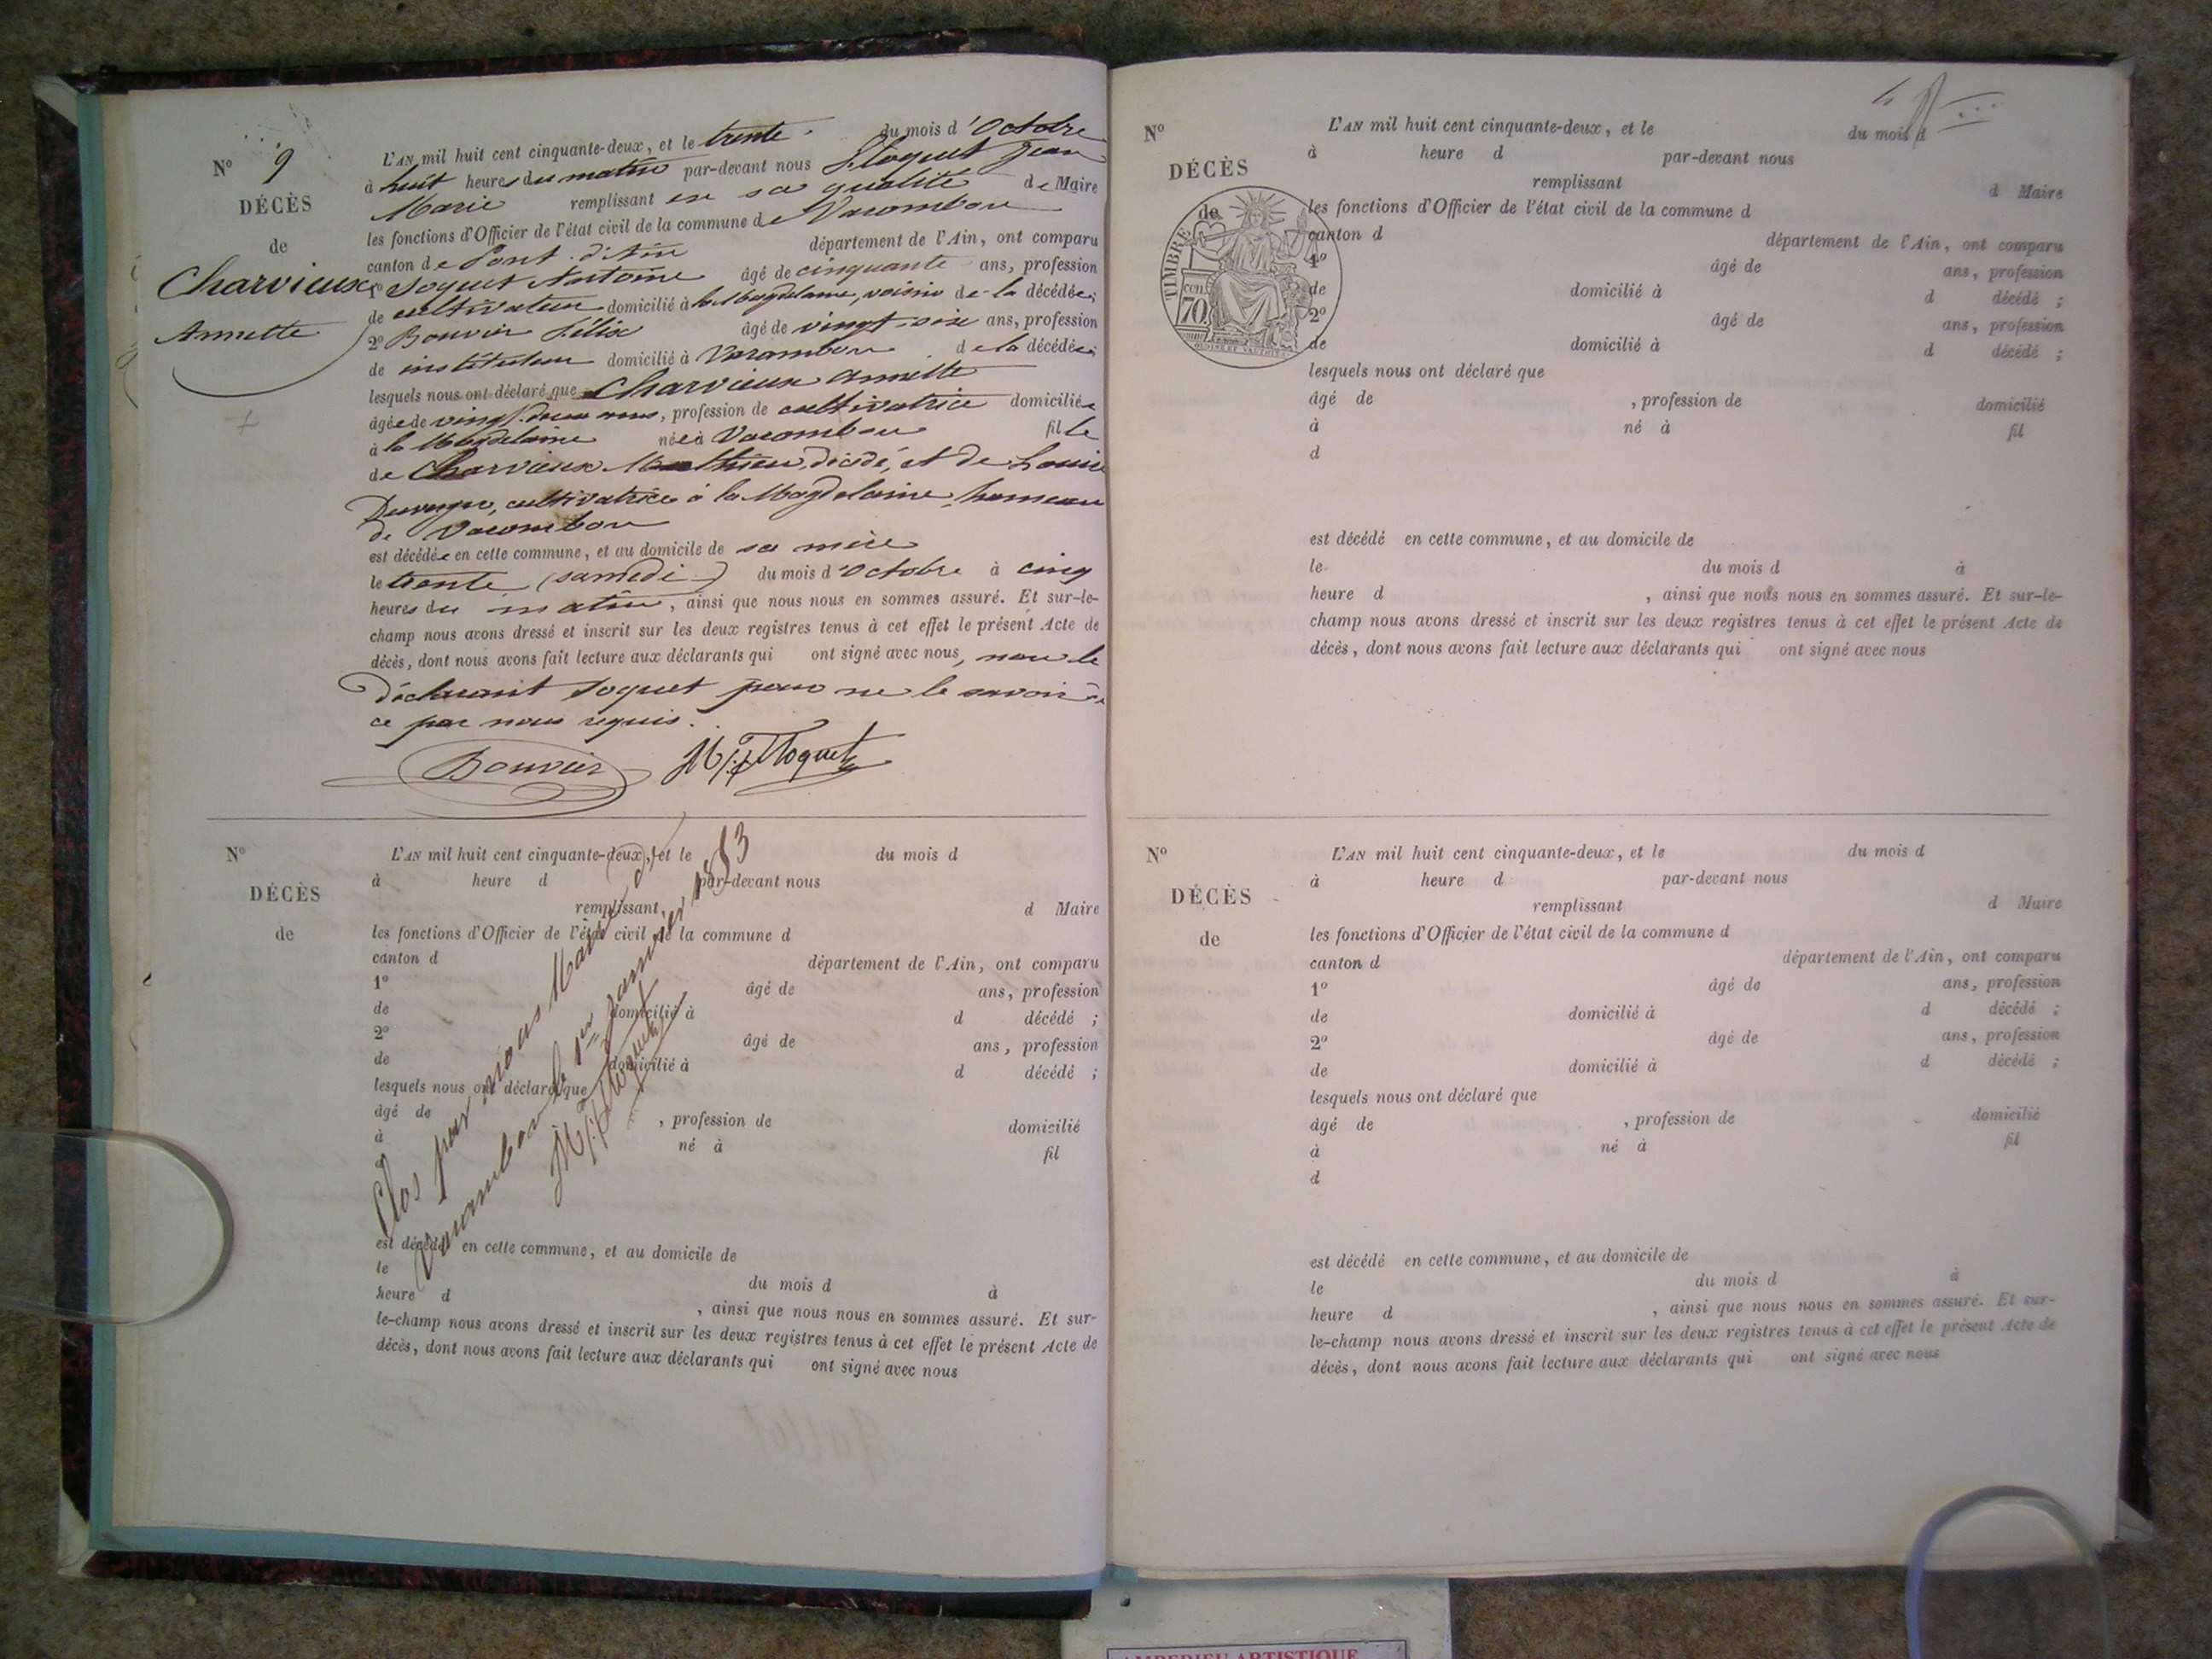 N° 9
DÉCÈS
de
Charvieux
Annette
L'AN mil huit cent cinquante-deux, et le trente du mois d'Octobre
à huit heures du matin par-devant nous Floquet Jean
Marie remplissant en sa qualité de Maire
les fonctions d'Officier de l'état civil de la commune de Varambon
canton de Pont-d'Ain département de l'Ain, ont comparu
1° Soquet Antoine âgé de cinquante ans, profession
de cultivateur domicilié à la Magdelaine, voisin de la décédée;
2° Bouvier Félix âgé de vingt-six ans, profession
de instituteur domicilié à Varambon de la décédée;
lesquels nous ont déclaré que Charvieux Annette
âgée de vingt-deux ans, profession de cultivatrice domiciliée
à la Magdelaine née à Varambon fille
de Charvieux Mathieu, décédé, et de Louise
cultivatrice à la Magdelaine, hameau
de Varambon
est décédée en cette commune, et au domicile de sa mère
le trente (samedi) du mois d'Octobre à cinq
heures du matin, ainsi que nous nous en sommes assuré. Et sur-le-
champ nous avons dressé et inscrit sur les deux registres tenus à cet effet le présent Acte de
décès, dont nous avons fait lecture aux déclarants qui ont signé avec nous, non le
déclarant Soquet pour ne le savoir de
ce par nous requis.
Bouvier Floquet
N°
DÉCÈS
de
L'AN mil huit cent cinquante-deux, et le du mois d
à heure d par-devant nous
remplissant d Maire
les fonctions d'Officier de l'état civil de la commune d
canton d département de l'Ain, ont comparu
1° âgé de ans, profession
de domicilié à d décédé ;
2° âgé de ans, profession
de domicilié à d décédé ;
lesquels nous ont déclaré que
âgé de , profession de domicilié
à né à fil
d
est décédé en cette commune, et au domicile de
le du mois d à
heure d , ainsi que nous nous en sommes assuré. Et sur-
le-champ nous avons dressé et inscrit sur les deux registres tenus à cet effet le présent Acte de
décès, dont nous avons fait lecture aux déclarants qui ont signé avec nous
Clos par nous Maire de
Varambon le 1er janvier 1853
Floquet
N°
DÉCÈS
de
TIMBRE
cen.
70
L'AN mil huit cent cinquante-deux, et le du mois d
à heure d par-devant nous
remplissant d Maire
les fonctions d'Officier de l'état civil de la commune d
canton d département de l'Ain, ont comparu
1° âgé de ans, profession
de domicilié à d décédé ;
2° âgé de ans, profession
de domicilié à d décédé ;
lesquels nous ont déclaré que
âgé de , profession de domicilié
à né à fil
d
est décédé en cette commune, et au domicile de
le du mois d à
heure d , ainsi que nous nous en sommes assuré. Et sur-le-
champ nous avons dressé et inscrit sur les deux registres tenus à cet effet le présent Acte de
décès, dont nous avons fait lecture aux déclarants qui ont signé avec nous
N°
DÉCÈS
de
L'AN mil huit cent cinquante-deux, et le du mois d
à heure d par-devant nous
remplissant d Maire
les fonctions d'Officier de l'état civil de la commune d
canton d département de l'Ain, ont comparu
1° âgé de ans, profession
de domicilié à d décédé ;
2° âgé de ans, profession
de domicilié à d décédé ;
lesquels nous ont déclaré que
âgé de , profession de domicilié
à né à fil
d
est décédé en cette commune, et au domicile de
le du mois d à
heure d , ainsi que nous nous en sommes assuré. Et sur-
le-champ nous avons dressé et inscrit sur les deux registres tenus à cet effet le présent Acte de
décès, dont nous avons fait lecture aux déclarants qui ont signé avec nous
AMPERIEU ARTISTIQUE